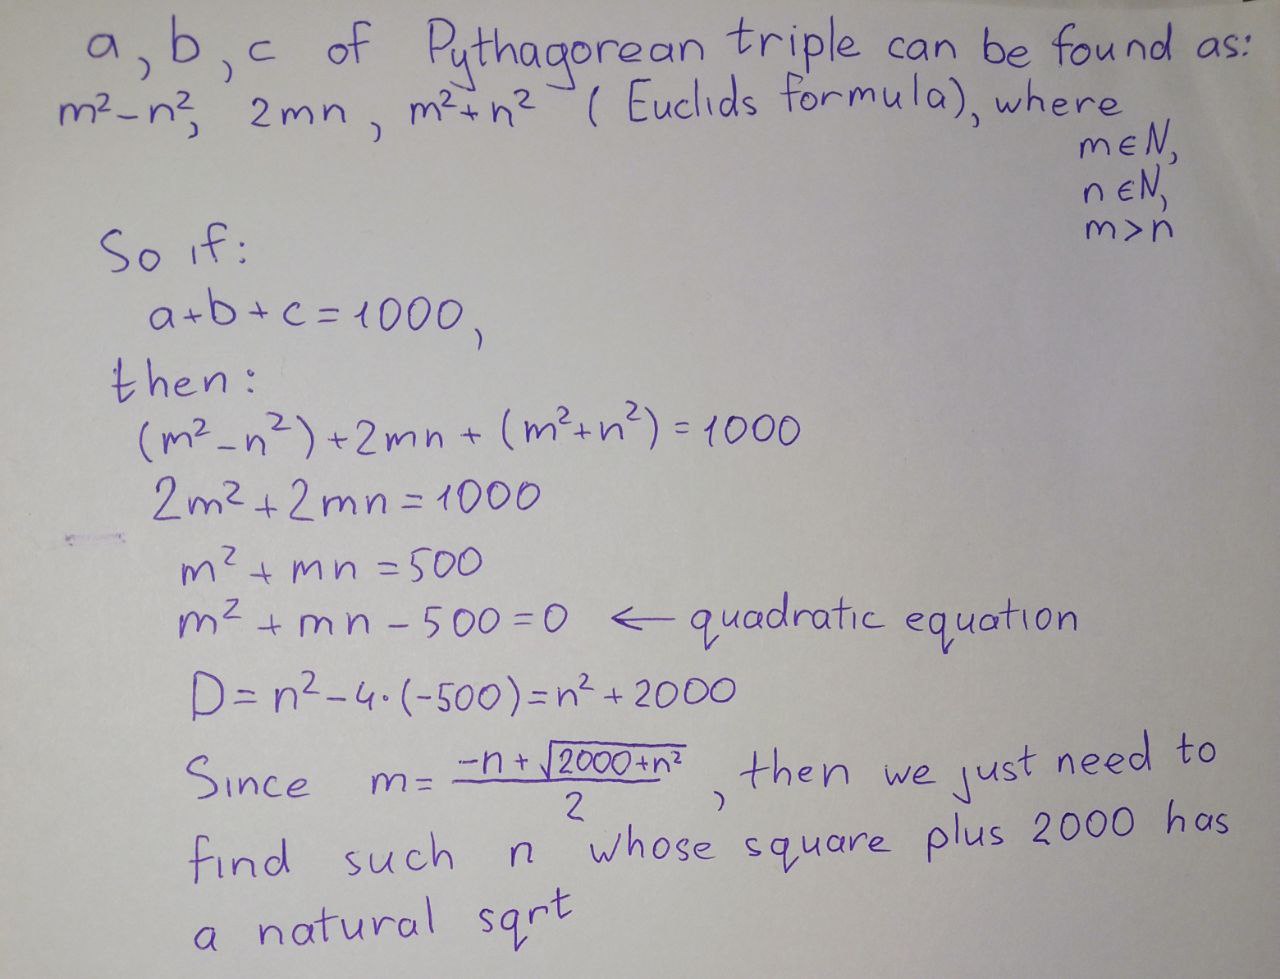 a, b, c of Pythagorean triple can be found as:
m²-n², 2mn, m²+n² (Euclids formula), where
m∈N,
n∈N,
m>n
So if:
a+b+c=1000,
then:
(m²-n²)+2mn+(m²+n²)=1000
2m²+2mn=1000
m²+mn=500
m²+mn-500=0 ← quadratic equation
D=n²-4·(-500)=n²+2000
Since m=(-n+√(2000+n²))/2, then we just need to
find such n whose square plus 2000 has
a natural sqrt